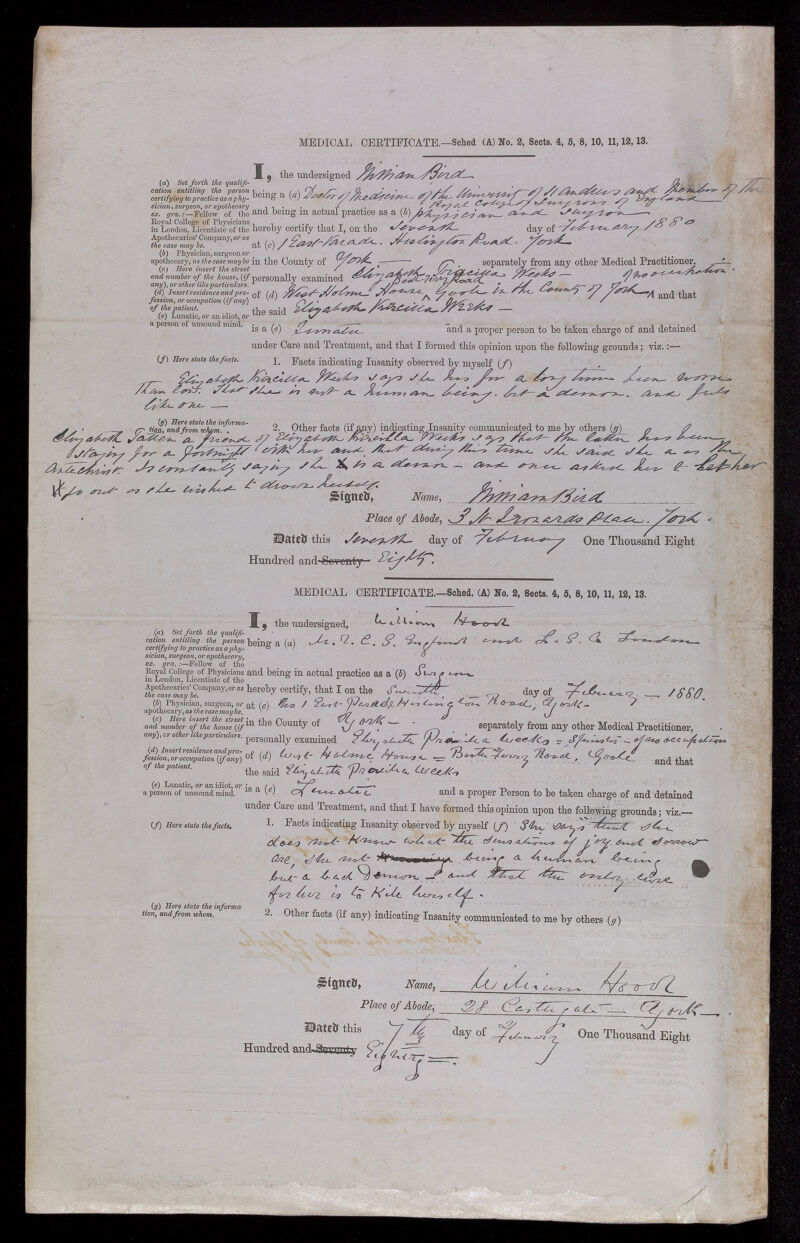 MEDICAL CERTIFICATE.—Sched (A) No. 2, Sects. 4, 5, 8, 10, 11, 12, 13.
I, the undersigned William Bird
(a) Set forth the qualification entitling the person certifying to practice as a physician, surgeon, or apothecary ex. gra.:—Fellow of the Royal College of Physicians in London, Licentiate of the Apothecaries' Company, or as the case may be.
being a (a) Doctor of Medicine of the University of St Andrews and Member of the
Royal College of Surgeons of England
and being in actual practice as a (b) physician and surgeon
hereby certify that I, on the Seventh day of February 1880
at (c) 1 East Parade. Heslington Road. York
(b) Physician, surgeon or apothecary, as the case may be
in the County of York — separately from any other Medical Practitioner,
(c) Here insert the street and number of the house, (if any), or other like particulars.
personally examined Elizabeth Priscilla Weeks — of no occupation.
(d) Insert residence and profession, or occupation (if any) of the patient.
Booth Ferry Road
of (d) West Holme House ^ Goole in the County of York ^ and that
the said Elizabeth Priscilla Weeks —
(e) Lunatic, or an idiot, or a person of unsound mind.
is a (e) Lunatic and a proper person to be taken charge of and detained
under Care and Treatment, and that I formed this opinion upon the following grounds; viz.:—
(f) Here state the facts.
1. Facts indicating Insanity observed by myself (f)
Elizabeth Priscilla Weeks says she has for a long time been worse
than lost. That she is not a human being. but a demon. and feels
like one —
(g) Here state the information, and from whom.
2. Other facts (if any) indicating Insanity communicated to me by others (g)
Elizabeth a friend of Elizabeth Priscilla Weeks says that the latter has been
staying for a fortnight with her and that during this time she said she as the
Antechrist. Is constantly saying she is a demon — and once asked her to let her
go out as she wished to drown herself.
Signed, Name, William Bird
Place of Abode, 3 St Leonards Place. York.
Dated this Seventh day of February One Thousand Eight
Hundred and Seventy Eighty.
MEDICAL CERTIFICATE.—Sched. (A) No. 2, Sects. 4, 5, 8, 10, 11, 12, 13.
I, the undersigned, William Hood
(a) Set forth the qualification entitling the person certifying to practice as a physician, surgeon, or apothecary, ex. gra.:—Fellow of the Royal College of Physicians in London, Licentiate of the Apothecaries' Company, or as the case may be.
being a (a) M. R. C. S. England and L. S. A. London
and being in actual practice as a (b) Surgeon
hereby certify, that I on the Seventh day of February — 1880.
(b) Physician, surgeon, or apothecary, as the case may be.
at (c) No 1 East Parade Heslington Road, York —
(c) Here insert the street and number of the house (if any), or other like particulars.
in the County of York — separately from any other Medical Practitioner,
personally examined Elizabeth Priscilla Weeks = Spinster — of no occupation
(d) Insert residence and profession, or occupation (if any) of the patient.
of (d) West Holme House = Booth Ferry Road. Goole and that
the said Elizabeth Priscilla Weeks
(e) Lunatic, or an idiot, or a person of unsound mind.
is a (e) Lunatic and a proper Person to be taken charge of and detained
under Care and Treatment, and that I have formed this opinion upon the following grounds; viz.—
(f) Here state the facts.
1. Facts indicating Insanity observed by myself (f) She says that she
does not know what the sensations of joy and sorrow
are, she not being a human being
but a bad Demon — and that the only cure
for her is to kill herself.
(g) Here state the informa tion, and from whom.
2. Other facts (if any) indicating Insanity communicated to me by others (g)
Signed, Name, William Hood
Place of Abode, 28 Castlegate — York —.
Dated this 7th day of February One Thousand Eight
Hundred and Seventy Eighty =.